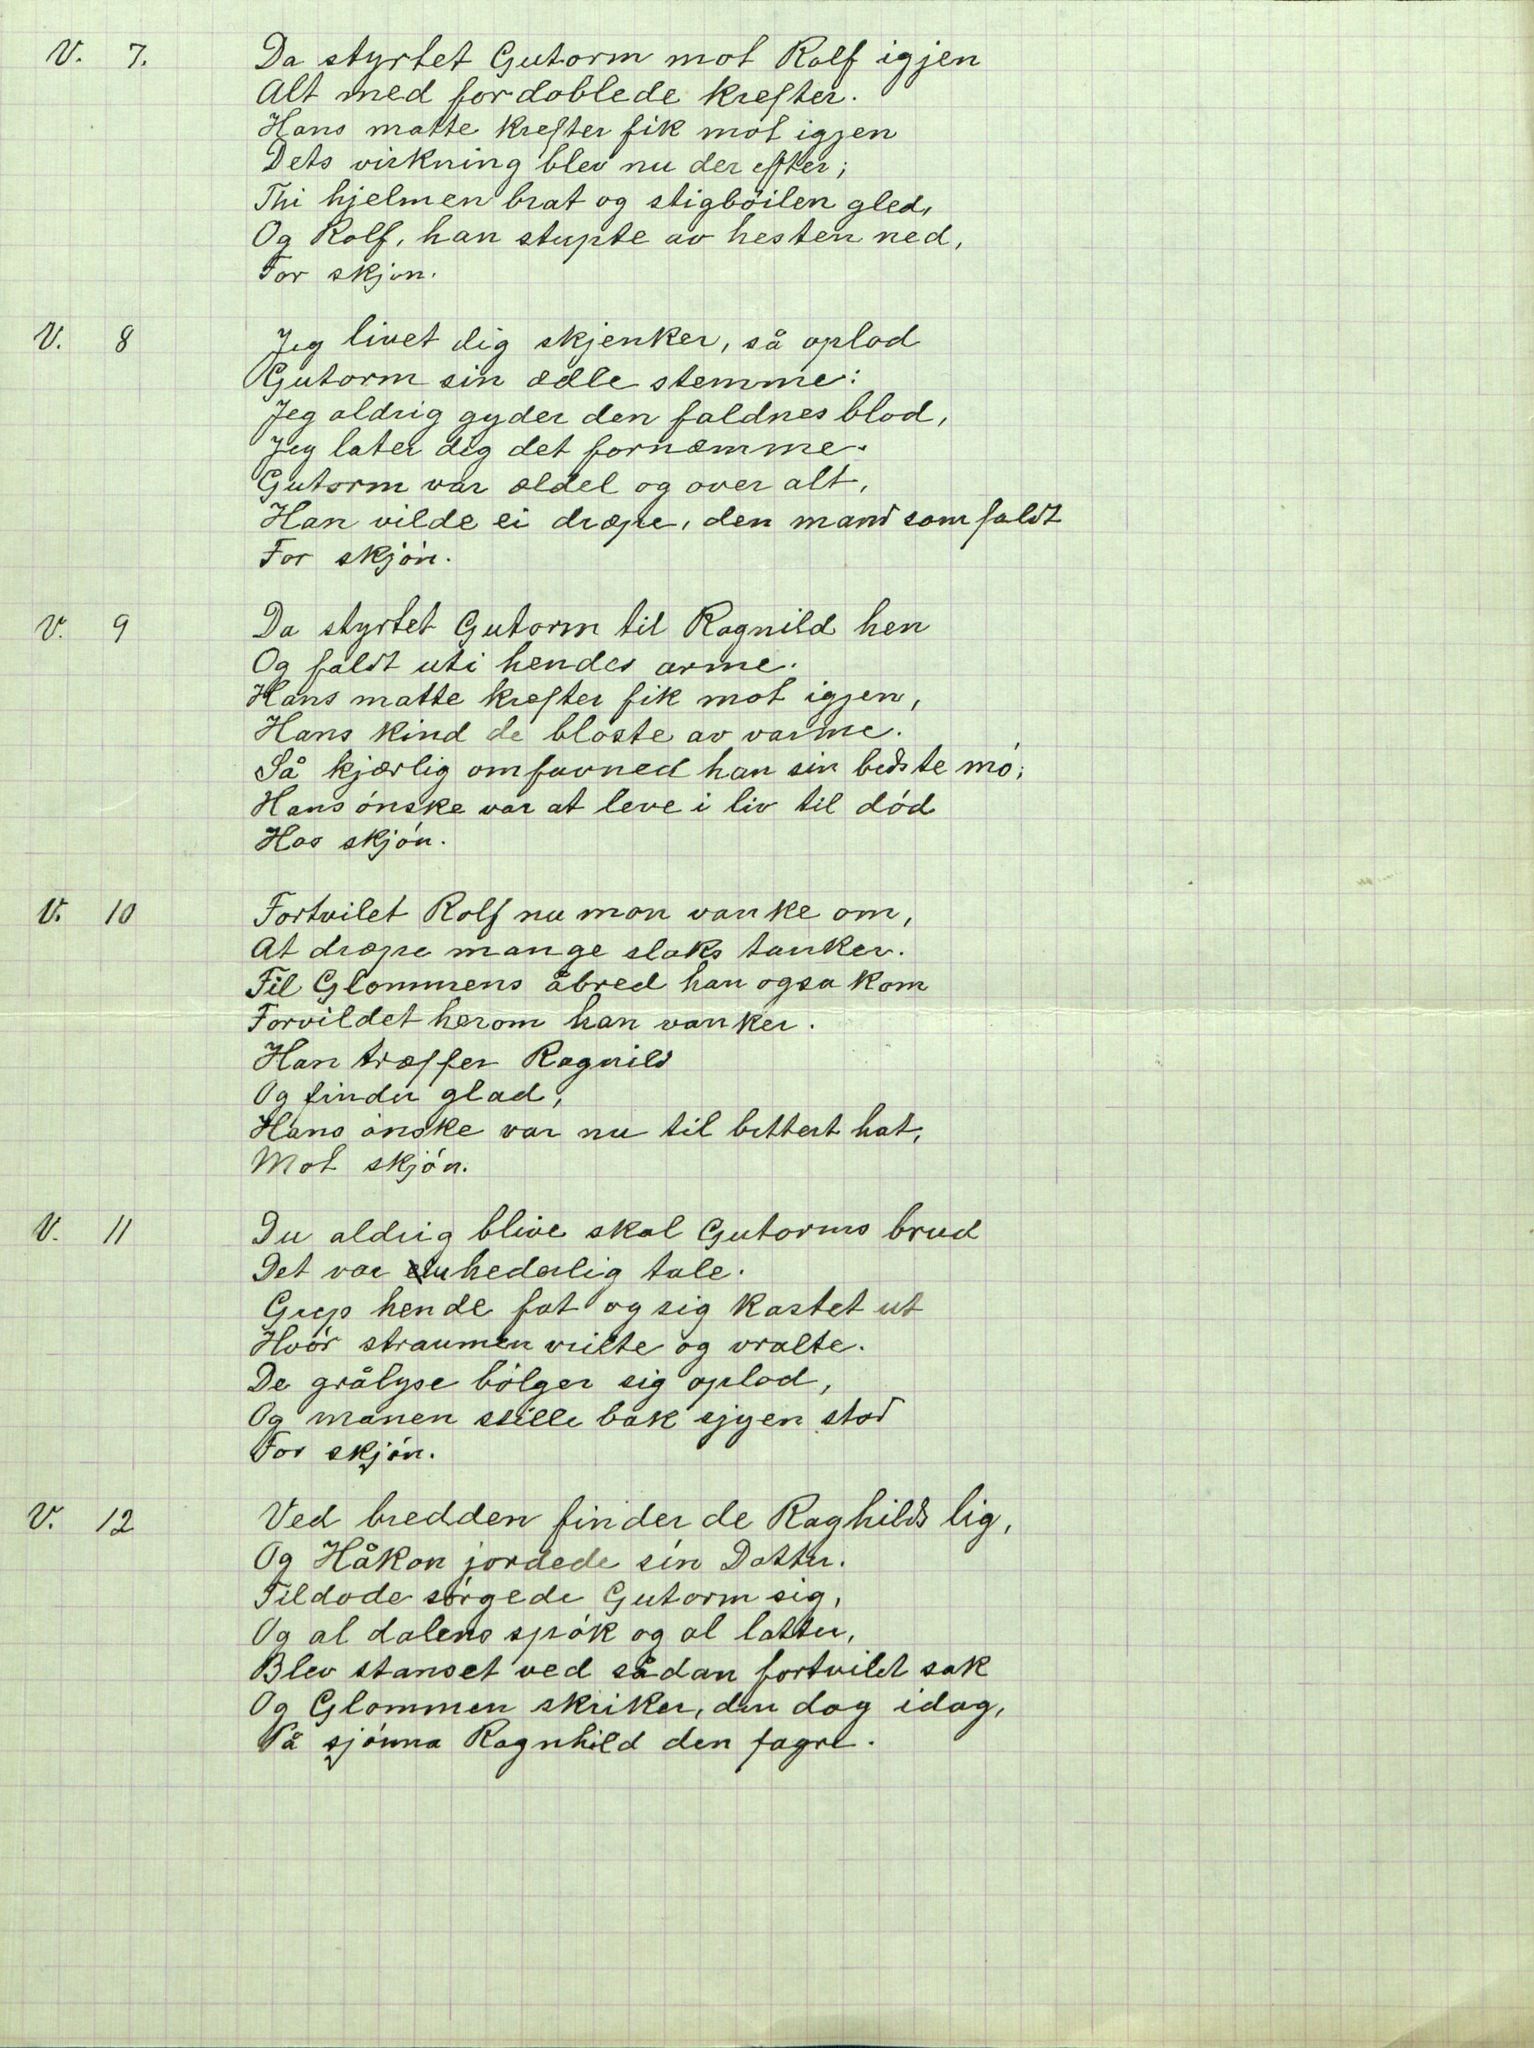 V. 7. Da styrtet Gutorm mot Rolf igjen
Alt med fordoblede krefter.
Hans matte krefter fik mot igjen
Dets virkning blev nu der efter;
Thi hjelmen brat og stigbøilen gled,
Og Rolf, han stupte av hesten ned,
For skjøn.
V. 8 Jeg livet dig skjenker, så oplod
Gutorm sin ædle stemme:
Jeg aldrig gyder den faldnes blod,
Jeg later dig det fornæmme.
Gutorm var ældel og over alt,
Han vilde ei dræpe, den mand som faldt
For skjón.
V. 9 Da styrtet Gutorm til Ragnild hen
Og faldt uti hendes arme.
Hans matte kræfter fik mot igjen,
Hans kind de bloste av varme.
Så kjærlig omfavned han sin bedste mó;
Hans ónske var at leve i liv til dód
Hos skjón.
V. 10 Fortvilet Rolf nu mon vanke om,
At dræpe mange slaks tanker.
Til Glommens åbred han også kom
Forvildet herom han vanker.
Han træffer Ragnild
Og finder glad,
Hans ønske var nu til bittert hat,
Mot skjón.
V. 11 Du aldrig blive skal Gutorms brud
Det var uhederlig tale.
Grep hende fat og sig kastet ut
Hvór straumen vrilte og vralte.
De grålyse bólger sig oplod,
Og månen stille bak sjyen stod
For skjón.
V. 12 Ved bredden finder de Raghilds lig,
Og Håkon jordede sin Datter.
Tildøde sórgede Gutorm sig,
Og al dalens spók og al latter,
Blev stanset ved sådan fortvilet sak
Og Glommen skriker, den dag idag,
På sjónna Ragnhild den fagre.